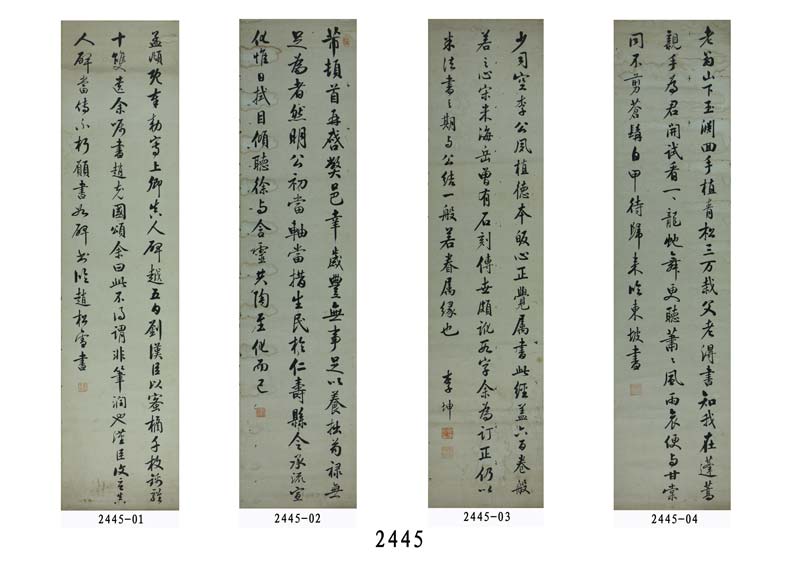 孟頫既奉勅寫上卿真人碑越五日劉漢臣以蜜橘千枚
十雙遺余囑書趙充國頌余曰此不得謂非筆潤也漢臣改立真
人碑當傳不朽願書如碑 臨趙松雪書
2445-01
芾頓首再啓獘邑幸歲豐無事足以養拙苟祿無
足為者然明公初當軸當措生民於仁壽縣令承流宣
化惟日拭目傾聽徐與含靈共陶至化而已
2445-02
少司空李公風植德本皈心正覺屬書此經蓋六百卷般
若之心宋米海岳曾有石刻傳世頗訛數字余為訂正仍以
米法書之期与公結一般若眷屬緣也
李坤
2445-03
老翁山下玉淵回手植青松三万栽父老得書知我在蓬蒿
親手為君開試看一一龍虵舞更聽蕭蕭風雨哀便与甘棠
同不剪蒼髯白甲待歸來臨東坡書
2445-04
2445